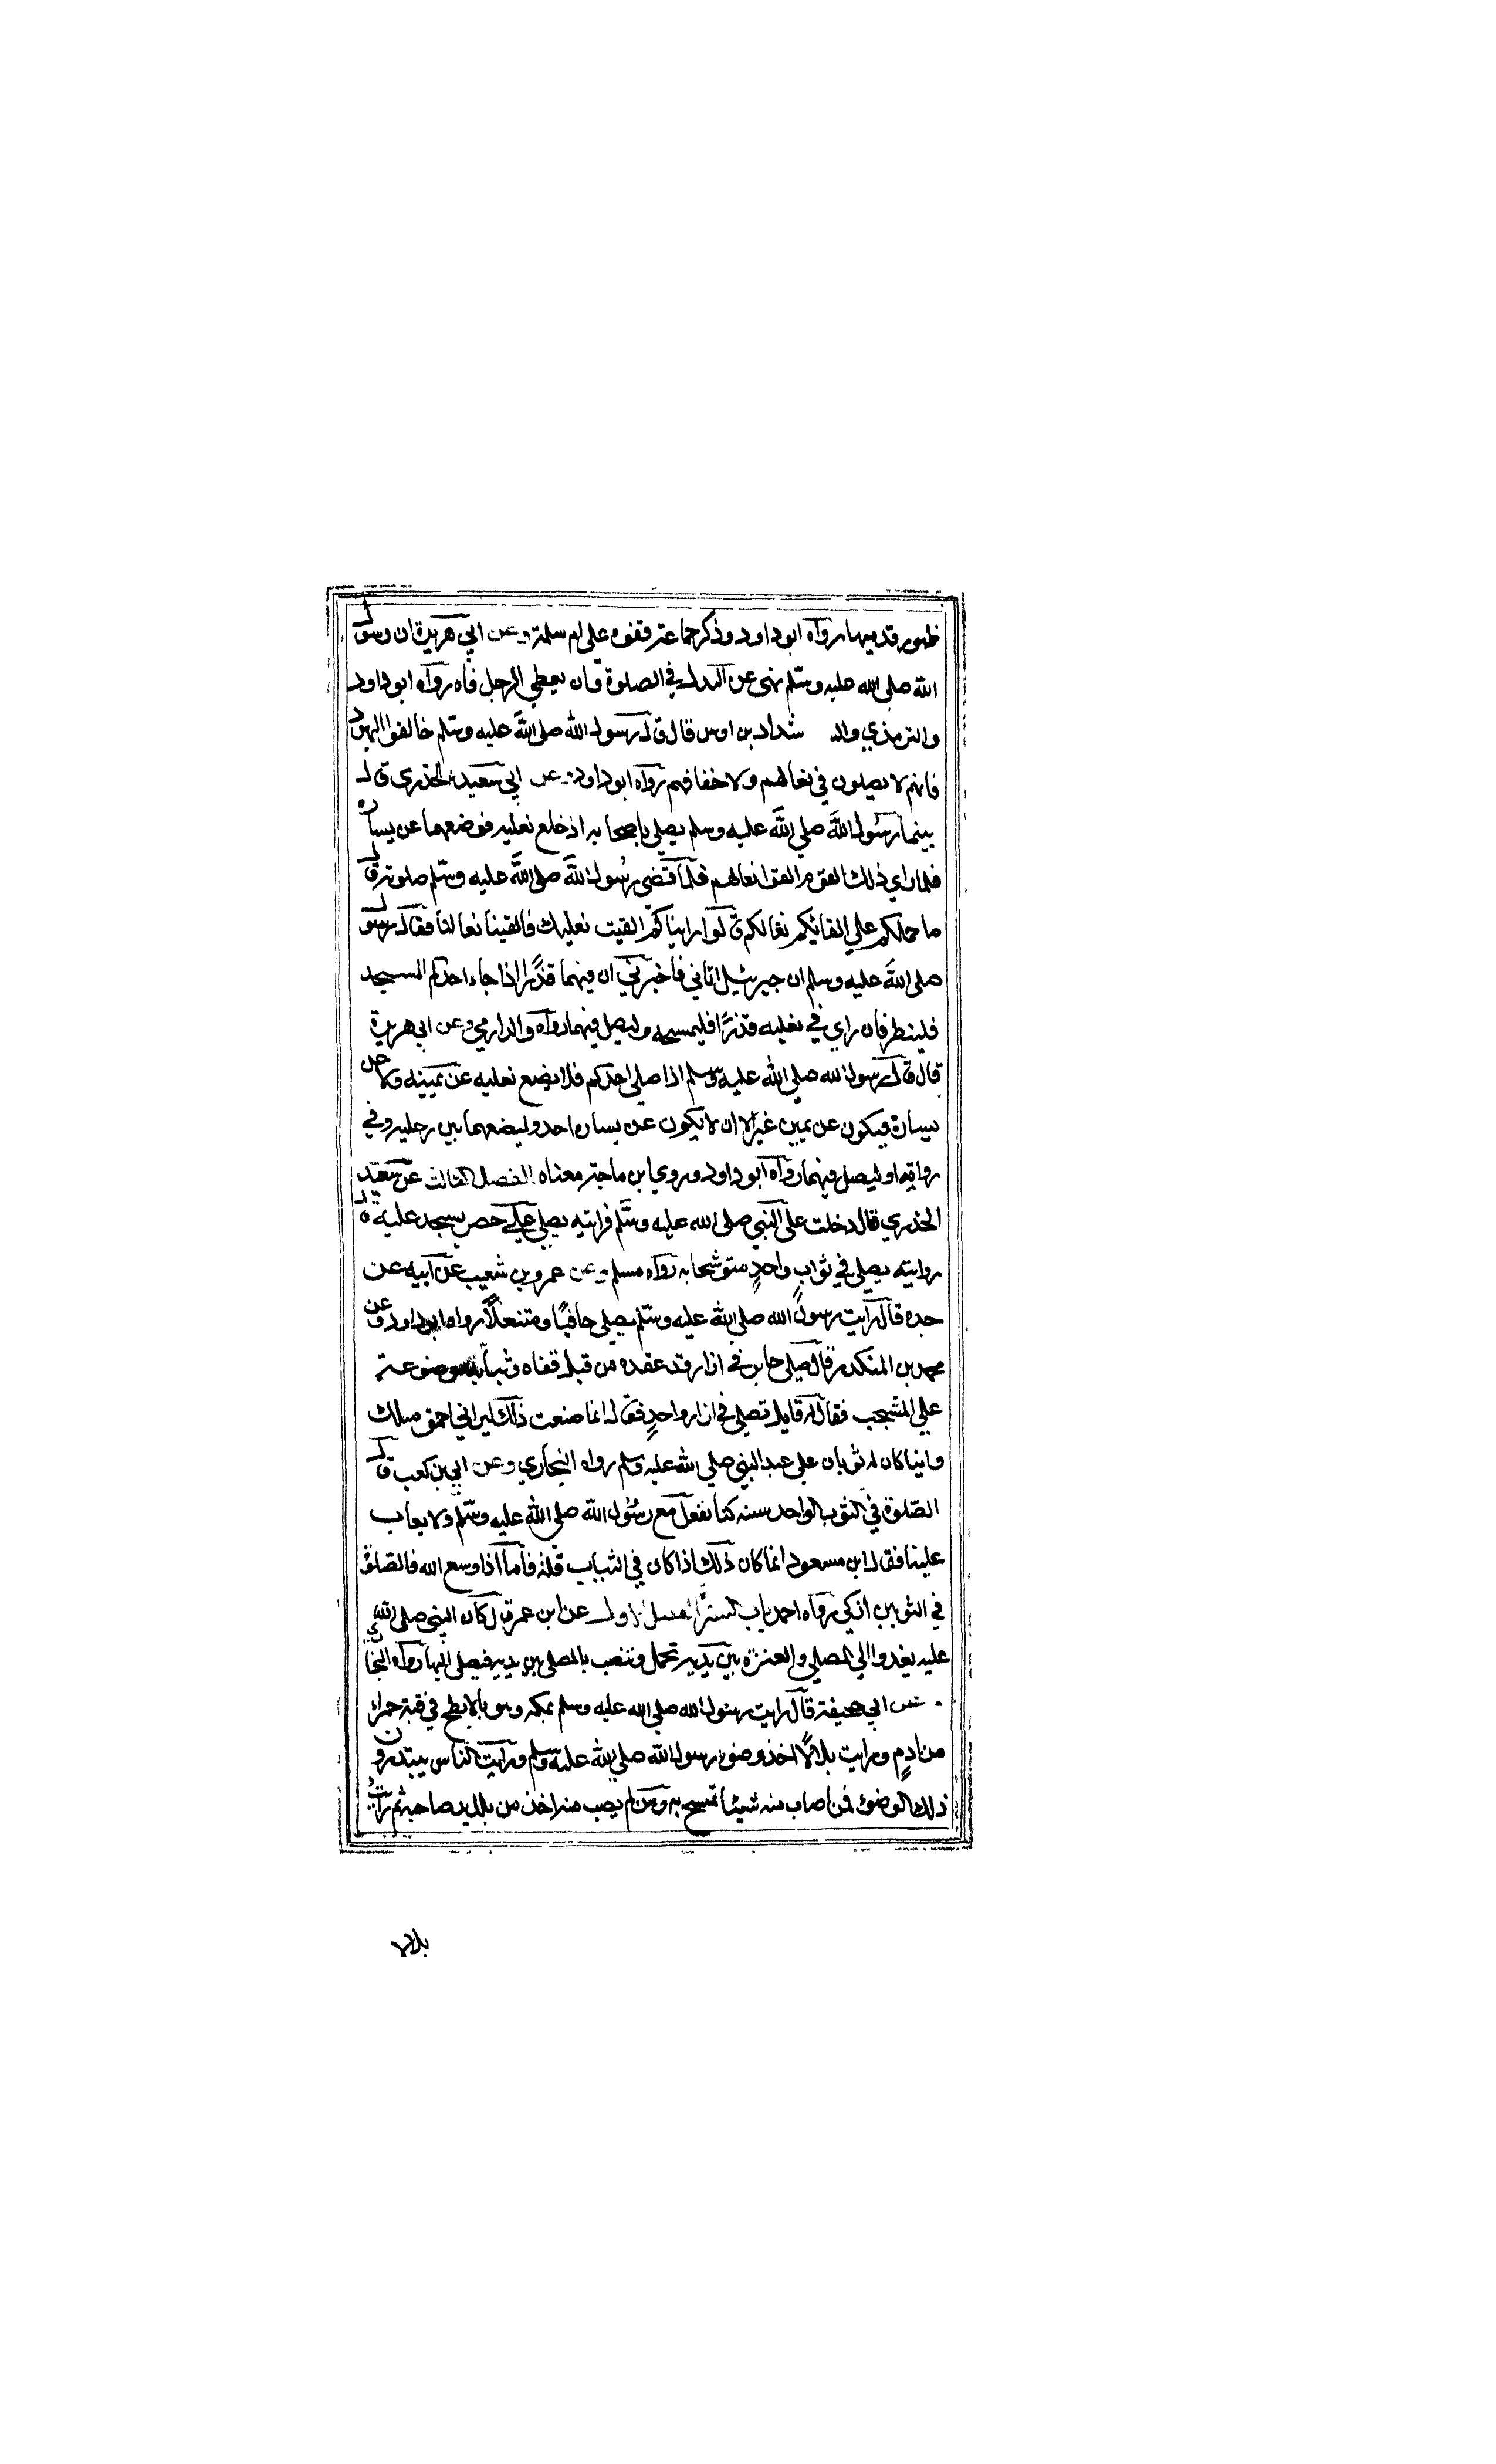 ظهور قدميها رواه ابو داود وذكر جماعة وقفوه على ام سلمة وعن ابي هريرة ان رسول
الله صلى الله عليه وسلم نهى عن السدل في الصلوة وان يغطي الرجل فاه رواه ابو داود
والترمذي شداد بن اوس قال قال رسول الله صلى الله عليه وسلم خالفوا اليهود
فانهم لا يصلون في نعالهم ولا خفافهم رواه ابو داود وعن ابي سعيد الخدري قال
بينما رسول الله صلي الله عليه وسلم يصلي باصحابه اذ خلع نعليه فوضعهما عن يساره
فلما راي ذلك القوم القوا نعالهم فلما قضى رسول الله صلى الله عليه وسلم صلوته قال
ما حملكم علي القائكم نعالكم قالوا رايناك القيت نعليك فالقينا نعالنا فقال رسول
صلى الله عليه وسلم ان جبرئيل اتاني فاخبرني ان فيهما قذرا اذا جاء احدكم المسجد
فلينظر فان راي في نعليه قذرا فليمسحه وليصل فيهما رواه والدارمي وعن ابي هريرة
قال قال رسول الله صلي الله عليه وسلم اذا صلى احدكم فلا يضع نعليه عن يمينه ولا عن
يساره فيكون عن يمين غيره الا ان لا يكون عن يساره احد وليضعهما بين رجليه وفي
رواية او ليصل فيهما رواه ابو داود وروي ابن ماجة معناه الفصل الثالث عن سعيد
الخدري قال دخلت على النبي صلى الله عليه وسلم فرايته يصلي علي حصير يسجد عليه قال
ورايته يصلي في ثواب واحد متوشحا به رواه مسلم وعن عمرو بن شعيب عن ابيه عن
جده قال رايت رسول الله صلى الله عليه وسلم يصلي حافيا ومتنعلا رواه ابو داود وعن
محمد بن المنكدر قال صلى جابر في ازار قد عقده من قبل قفاه وثيابه موضوعة
علي المشجب فقال له قايل تصلي في ازار واحد فقال انما صنعت ذلك ليراني احمق مثلك
واينا كان له ثوبان علي عهد النبي صلي الله عليه وسلم رواه البخاري وعن ابي بن كعب قال
الصلوة في الثوب الواحد سنه كنا نفعله مع رسول الله صلى الله عليه وسلم ولا يعاب
علينا فقال ابن مسعود انما كان ذلك اذا كان في الثياب قلة فاما اذا وسع الله فالصلوة
في الثوبين ازكي رواه احمد باب السترة الفصل الاول عن ابن عمر قال كان النبي صلى الله
عليه يغدوا الي المصلي والعنزة بين يديه تحمل وتنصب بالمصلي بين يديه فيصلى اليها رواه البخاري
وعن ابي جحيفة قال رايت رسول الله صلي الله عليه وسلم بمكه وهو بالابطح في قبة حمراء
من ادم ورايت بلالا اخذ وضوء رسول الله صلي الله عليه وسلم ورايت الناس يبتدرون
ذلك الوضوء فمن اصاب منه شيئا تمسح به ومن لم يصب منه اخذ من بلل يد صاحبه ثم رايت
بلالا